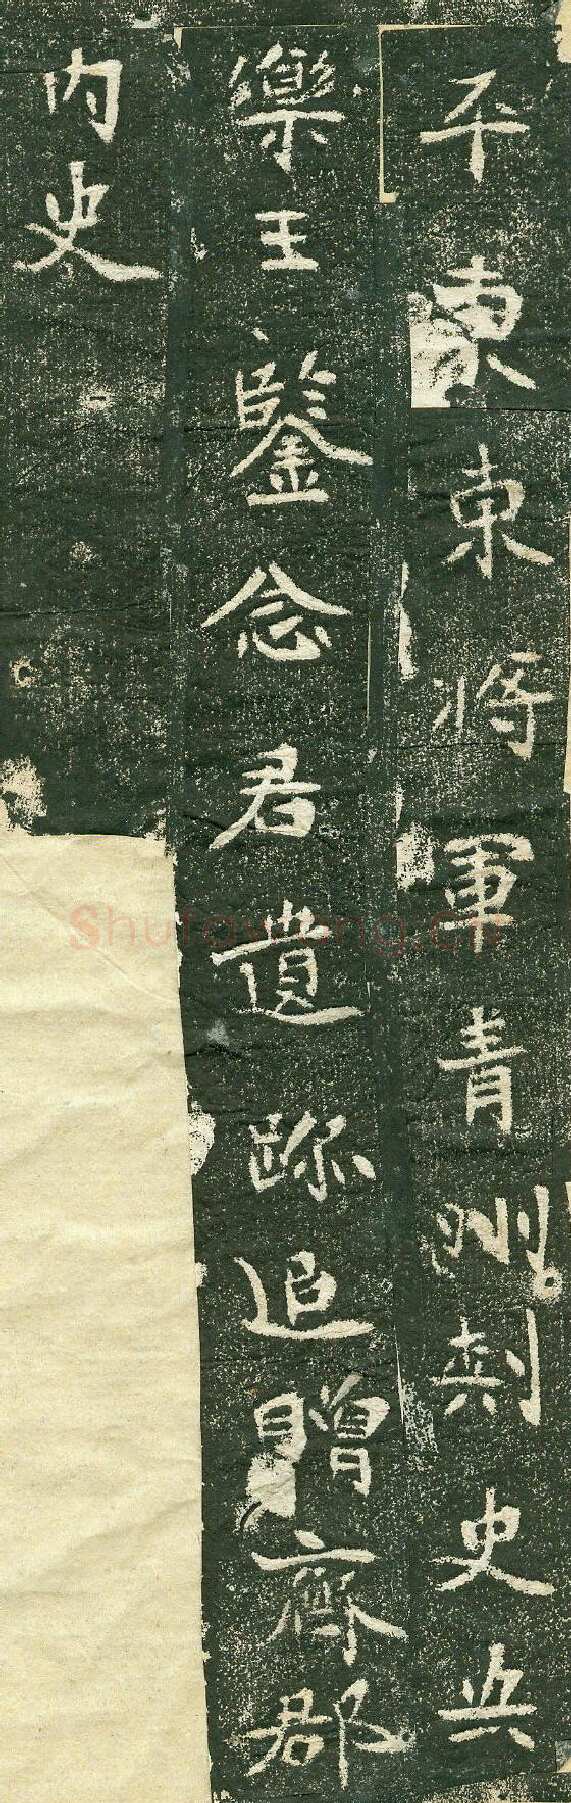 平東東將軍青州刺史安
樂王鑒念君遺跡追贈齊郡
内史
Shufawang.cn